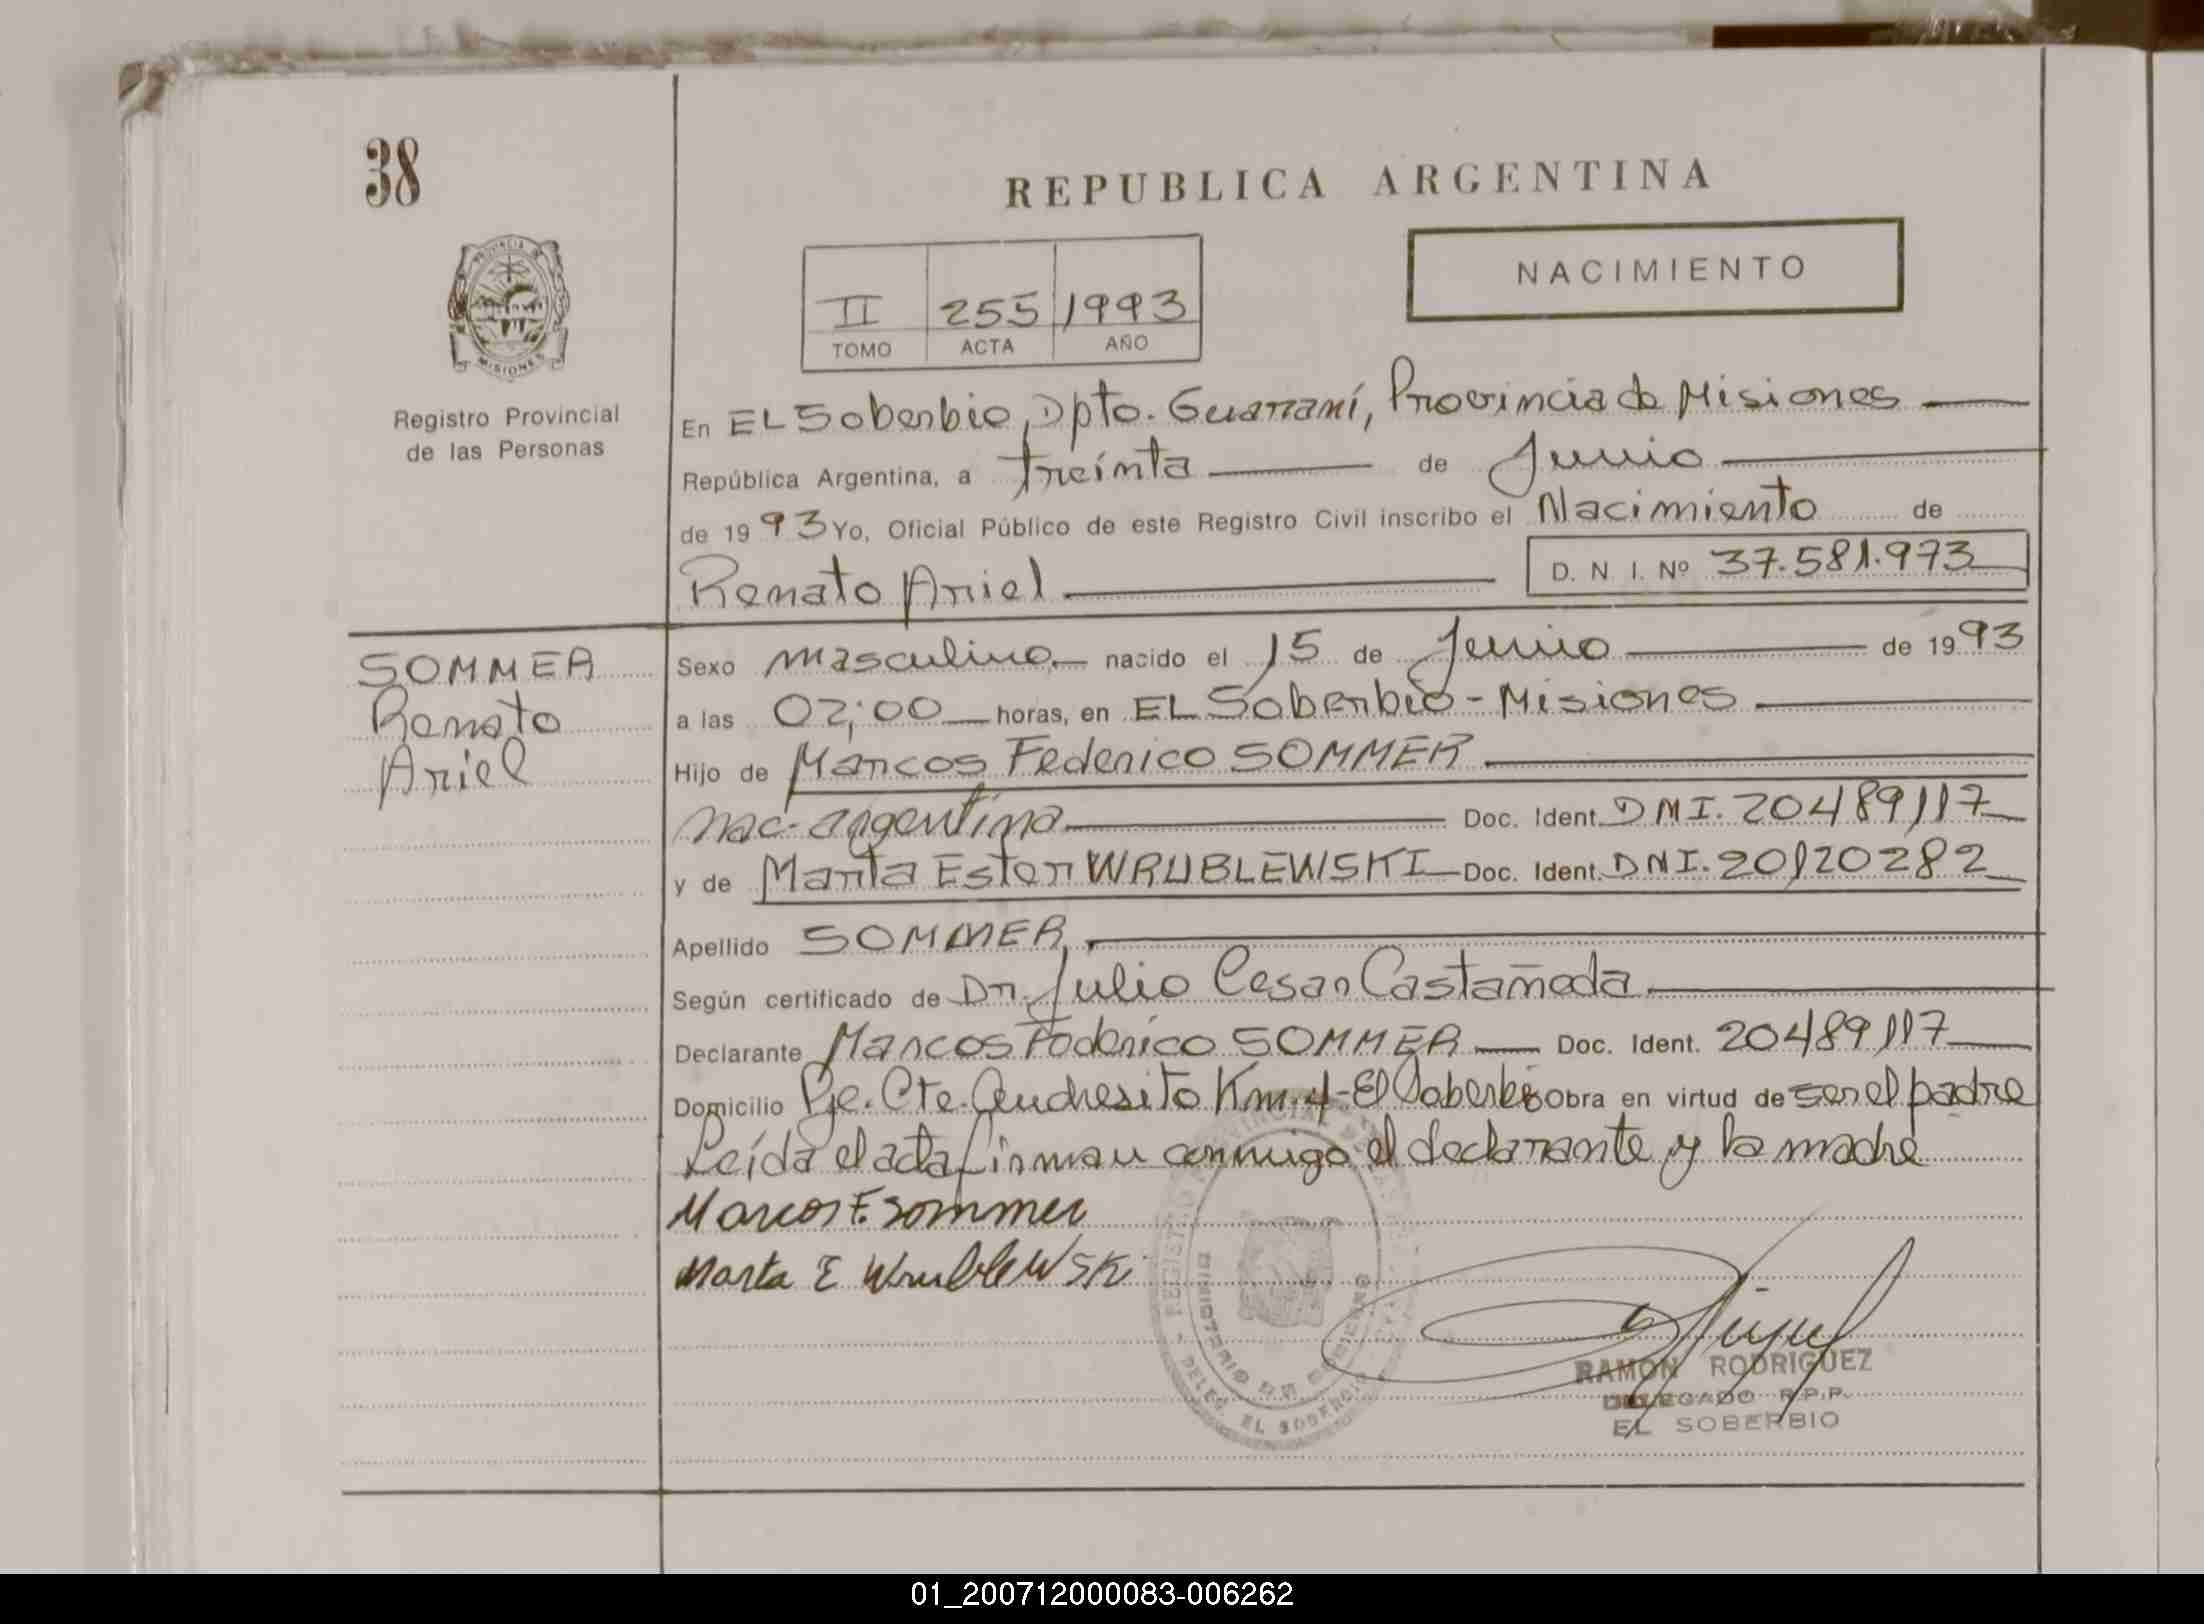 38
REPUBLICA ARGENTINA
NACIMIENTO
II 255 1993
TOMO ACTA AÑO
PROVINCIA DE
MISIONES
Registro Provincial
de las Personas
En EL Soberbio, Dpto. Guaraní, Provincia de Misiones
República Argentina, a treinta de Junio
de 1993 Yo, Oficial Público de este Registro Civil inscribo el Nacimiento de
Renato Ariel D. N. I. Nº 37.581.973
SOMMER
Renato
Ariel
Sexo masculino nacido el 15 de Junio de 1993
a las 02:00 horas, en EL Soberbio - Misiones
Hijo de Marcos Federico SOMMER
nac. argentina Doc. Ident. DNI. 20489117
y de Marta Ester WRUBLEWSKI Doc. Ident. DNI. 20120282
Apellido SOMMER
Según certificado de Dr. Julio Cesar Castañeda
Declarante Marcos Federico SOMMER Doc. Ident. 20489117
Domicilio Pje. Cte. Andresito Km. 4 - El Soberbio Obra en virtud de ser el padre
Leída el acta firman conmigo el declarante y la madre
Marcos F. Sommer
Marta E WrublewSki
MINISTERIO DE GOBIERNO
DELEG. EL SOBERBIO
RAMON RODRIGUEZ
DELEGADO R.P.P.
EL SOBERBIO
01_200712000083-006262